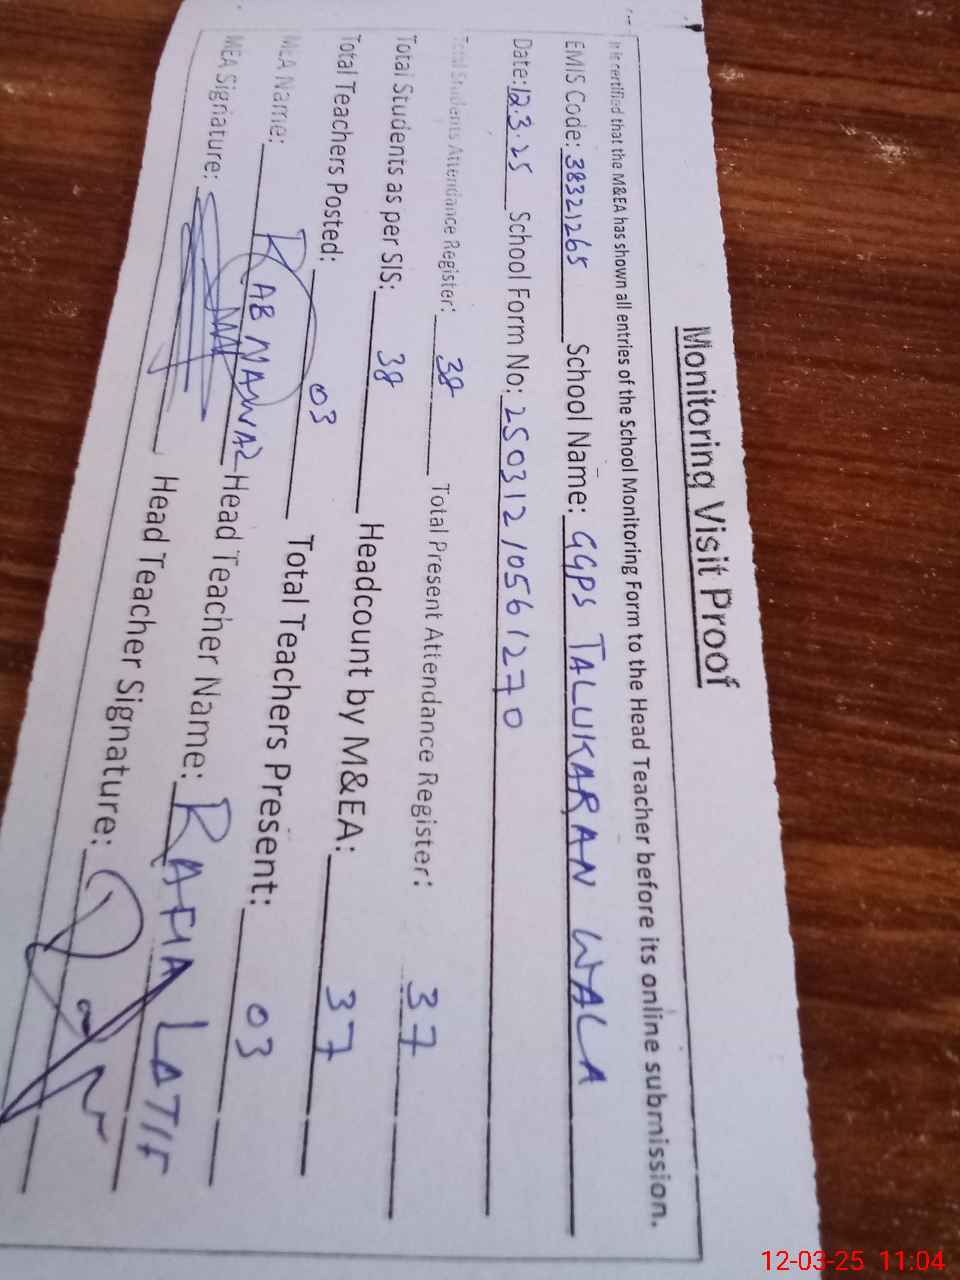 Monitoring Visit Proof
It is certified that the M&EA has shown all entries of the School Monitoring Form to the Head Teacher before its online submission.
EMIS Code: 38321265 School Name: GGPS TALUKARAN WALA
Date: 12.3.25 School Form No: 25031210561270
Total Students Attendance Register: 38 Total Present Attendance Register: 37
Total Students as per SIS: 38 Headcount by M&EA: 37
Total Teachers Posted: 03 Total Teachers Present: 03
MEA Name: RAB NAWAZ Head Teacher Name: RAFIA LATIF
MEA Signature: Head Teacher Signature:
12-03-25 11:04